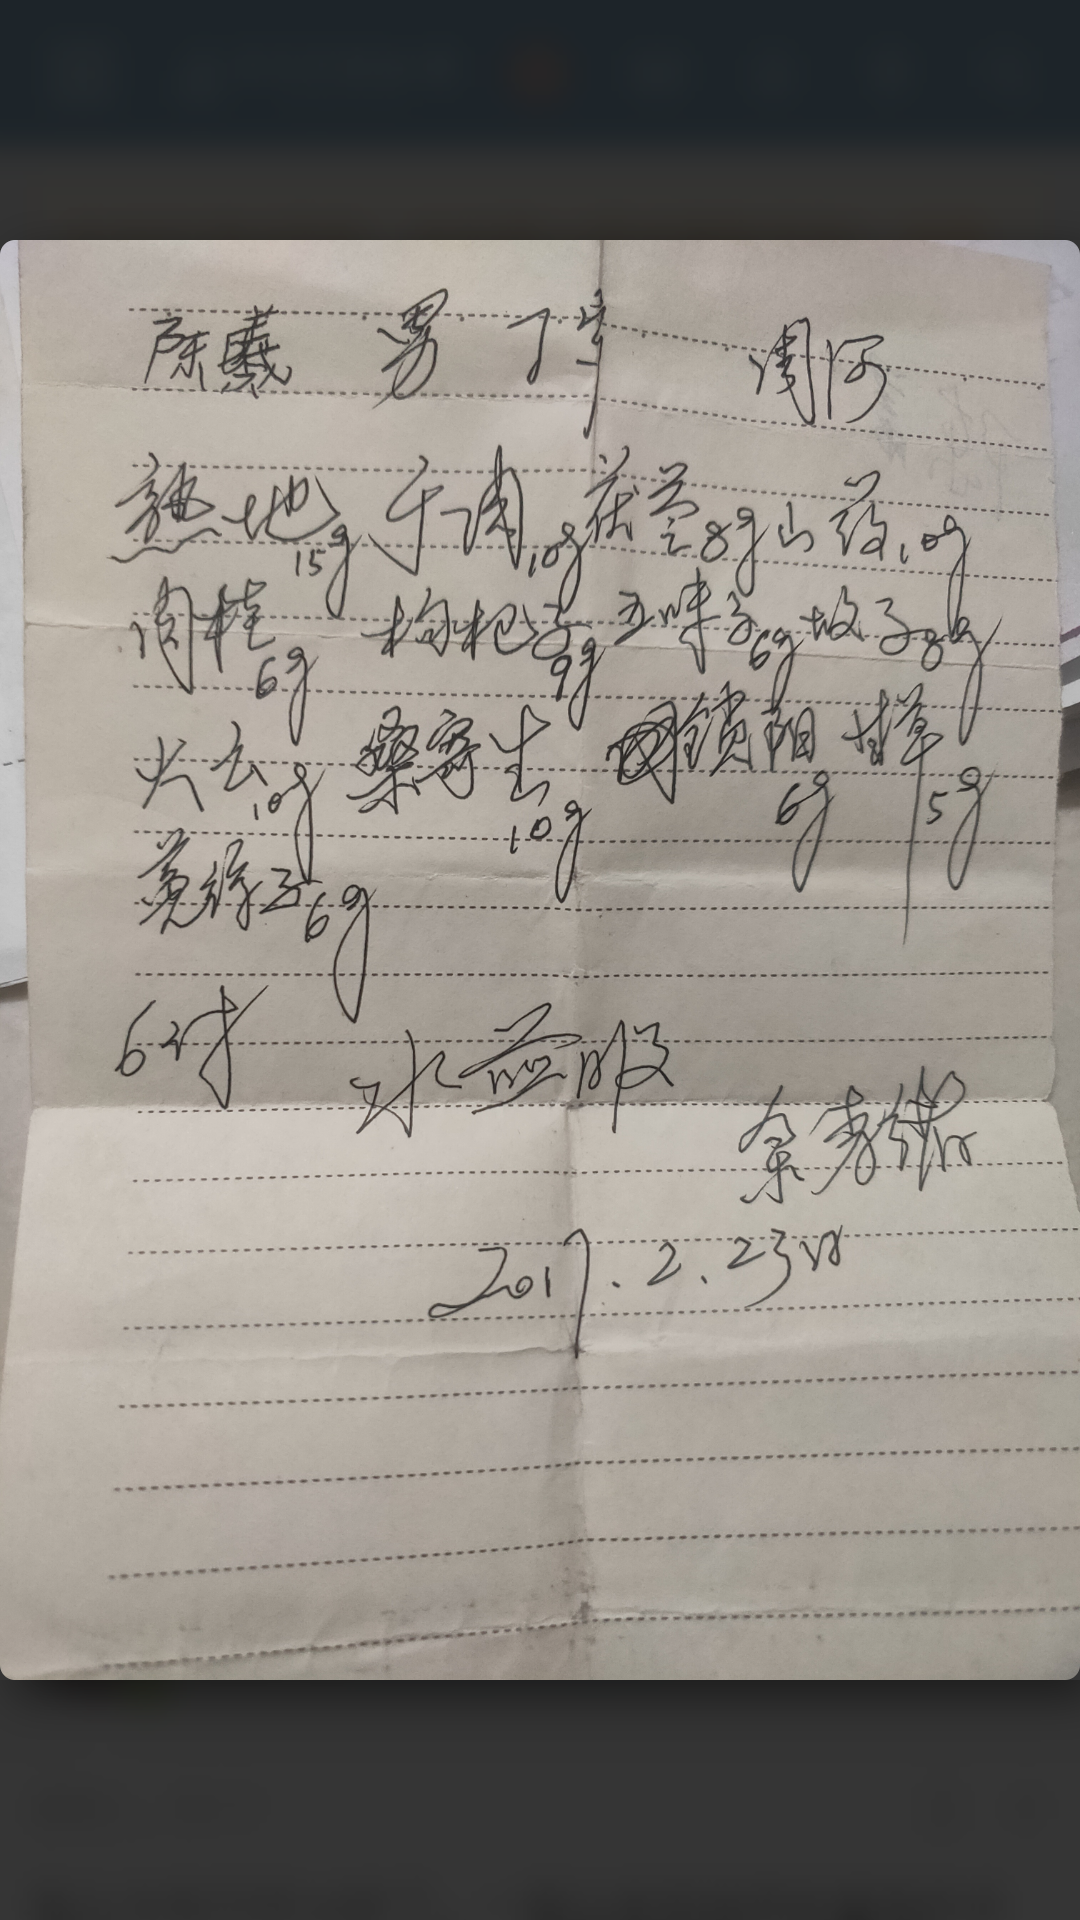 陈羲 男 7岁 周河
熟地15g 于肉10g 茯苓8g 山药10g
肉桂6g 枸杞子9g 五味子6g 故子8g
火云10g 桑寄生10g 锁阳6g 甘草5g
菟絲子6g
6付 水煎服
余孝
2017.2.23日